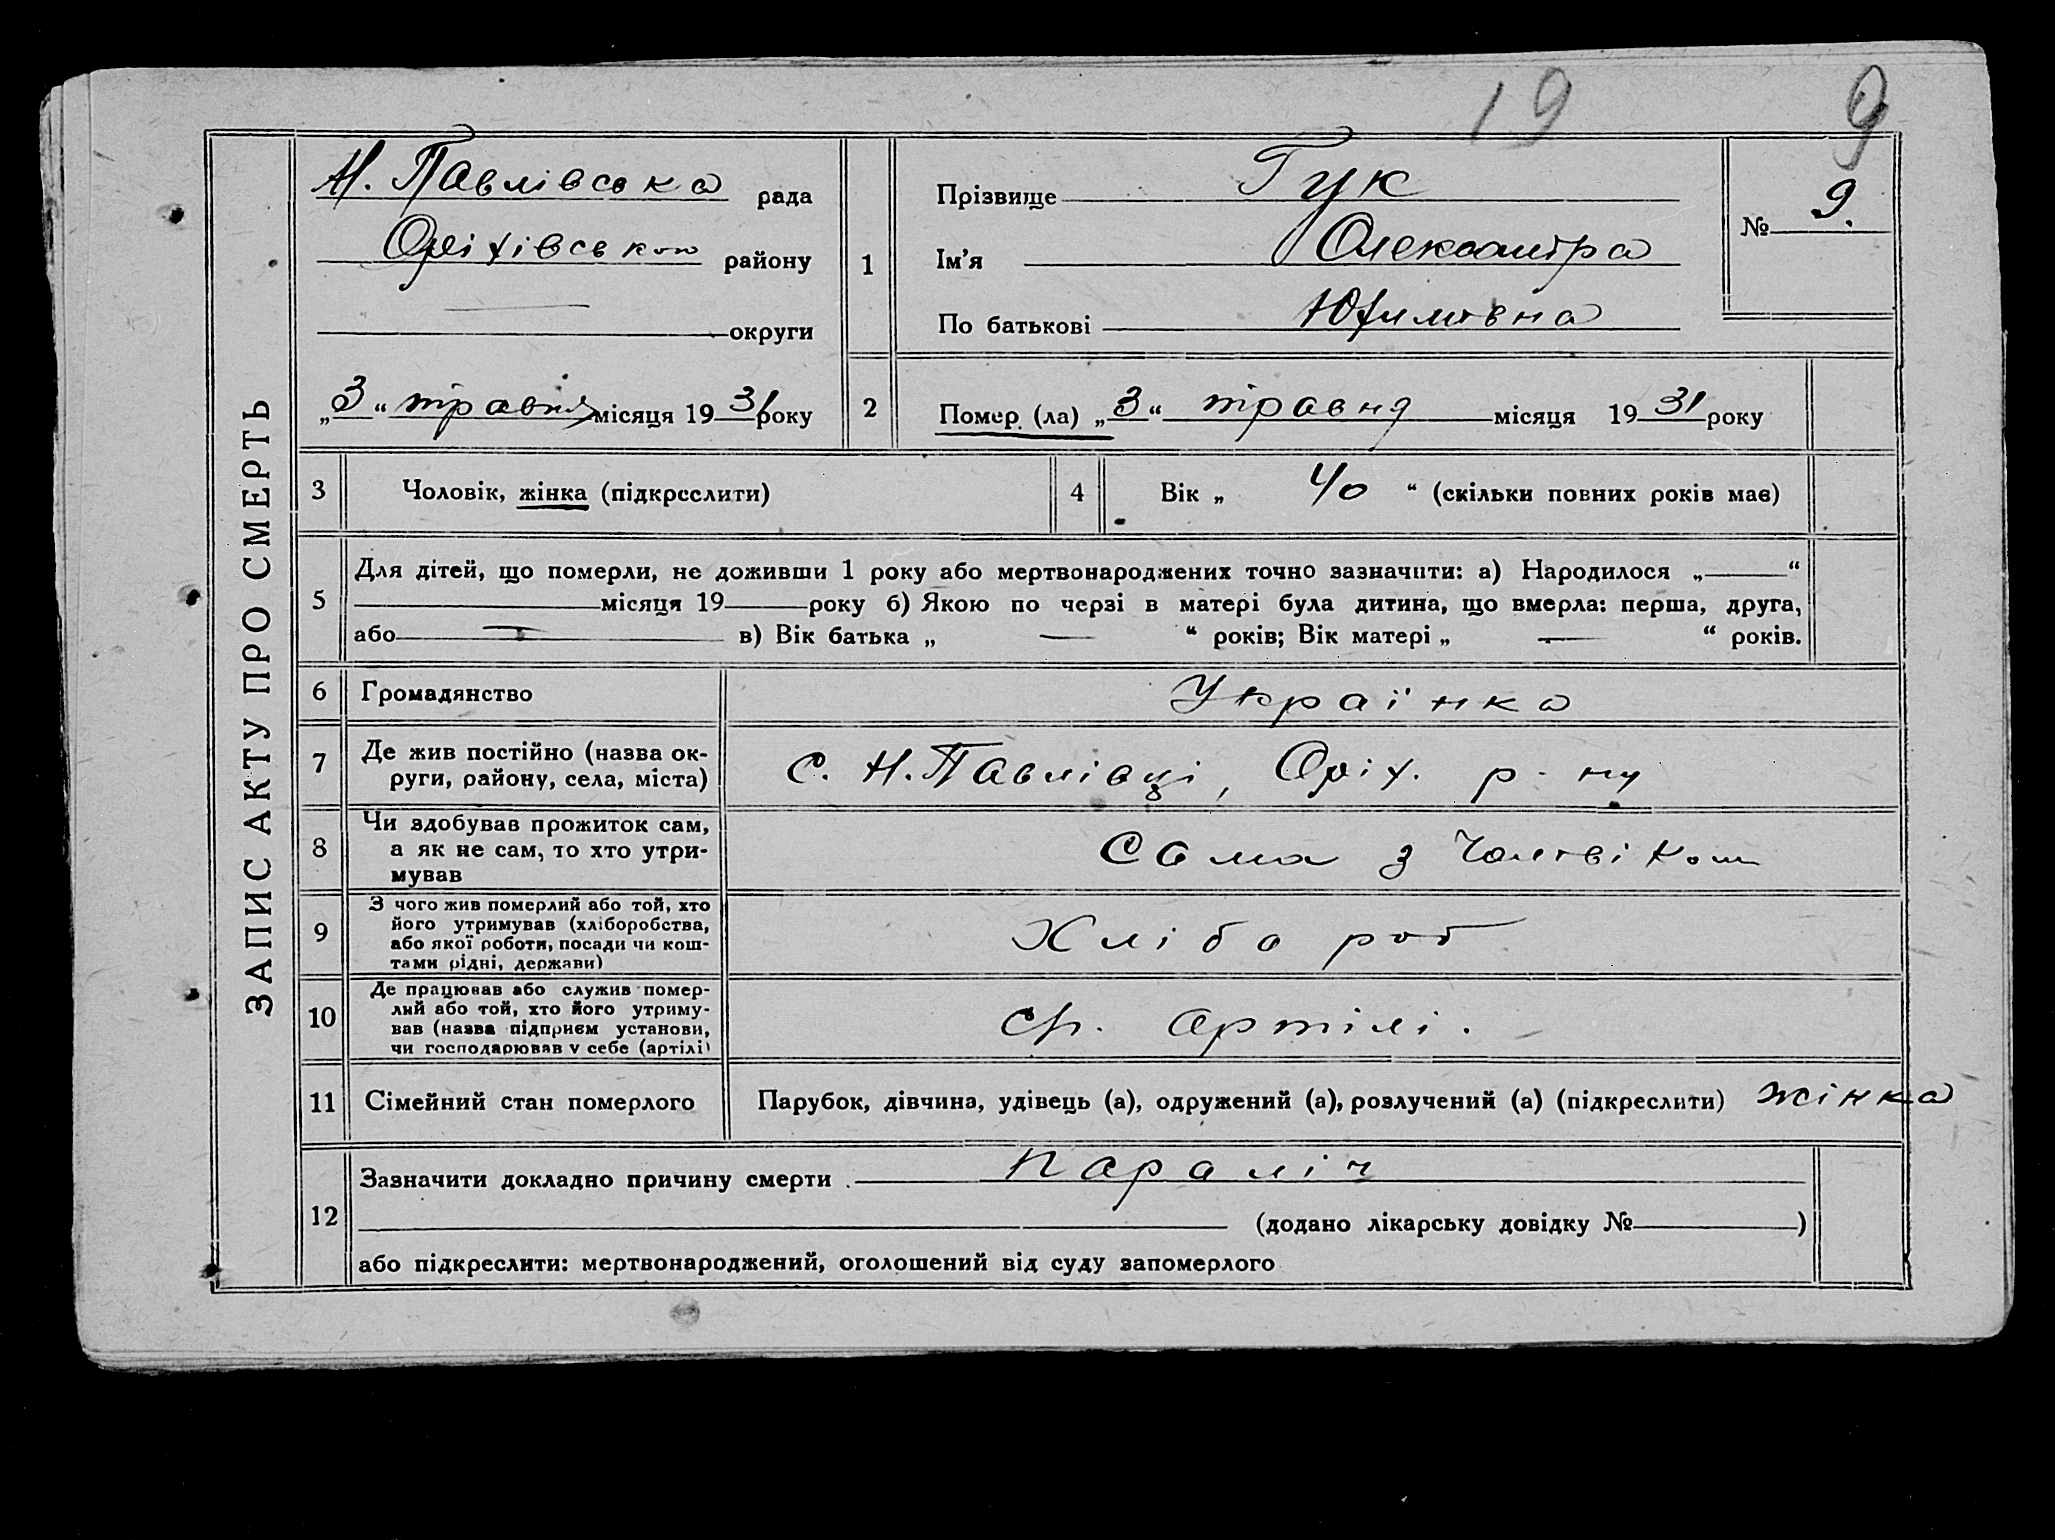 19 9
ЗАПИС АКТУ ПРО СМЕРТЬ
Н. Павлівська рада
Оріхівського району
округи
„3“ травня місяця 1931 року
1
Прізвище Гук
Ім'я Олександра
По батькові Юхимовна
№ 9.
2
Помер (ла) „3“ травня місяця 1931 року
3 Чоловік, жінка (підкреслити)
4 Вік „ 40 “ (скільки повних років має)
5
Для дітей, що померли, не доживши 1 року або мертвонароджених точно зазначити: а) Народилося „—“
місяця 19 року б) Якою по черзі в матері була дитина, що вмерла: перша, друга,
або — в) Вік батька „ — “ років; Вік матері „ — “ років.
6 Громадянство Українка
7 Де жив постійно (назва ок-
руги, району, села, міста)
с. Н. Павлівці, Оріх. р-ну
8 Чи здобував прожиток сам,
а як не сам, то хто утри-
мував
Сама з Чоловіком
9 З чого жив померлий або той, хто
його утримував (хліборобства,
або якої роботи, посади чи кош-
тами рідні, держави)
Хлібороб
10 Де працював або служив помер-
лий або той, хто його утриму-
вав (назва підприєм установи,
чи господарював у себе (артілі)
артілі.
11 Сімейний стан померлого Парубок, дівчина, удівець (а), одружений (а), розлучений (а) (підкреслити) жінка
12
Зазначити докладно причину смерти параліч
(додано лікарську довідку № )
або підкреслити: мертвонароджений, оголошений від суду запомерлого